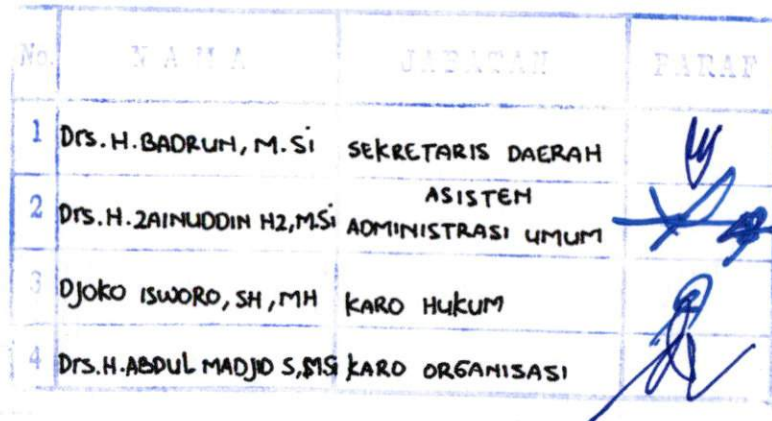 No. NAMA JABATAN PARAF
1 Drs. H. BADRUN, M. Si SEKRETARIS DAERAH
2 Drs. H. ZAINUDDIN HZ, M.Si ASISTEN
ADMINISTRASI UMUM
3 DJOKO ISWORO, SH, MH KARO HUKUM
4 Drs. H. ABDUL MADJID S, KARO ORGANISASI